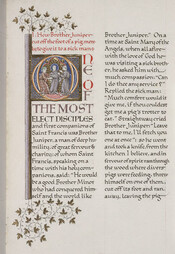 How Brother Juniper
cut off the foot of a pig mere-
ly to give it to a sick man
ONE OF
THE MOST
ELECT DISCIPLES
and first companions of
Saint Francis was Brother
Juniper, a man of deep hu-
mility, of great fervour &
charity; of whom Saint
Francis, speaking on a
time with his holy com-
panions, said: "He would
be a good Brother Minor
who had conquered him-
self and the world like
Brother Juniper." On a
time at Saint Mary of the
Angels, when all afire
with the love of God he
was visiting a sick broth-
er, he asked him with
much compassion: "Can
I do thee any service?"
Replied the sick man:
give me, if thou couldst
get me a pig's trotter to
eat." Straightway cried
Brother Juniper: "Leave
that to me, I'll fetch you
one at once"; so he went
and took a knife, from the
kitchen I believe, and in
fervour of spirit ran through
the wood where divers
pigs were feeding, threw
himself on one of them,
cut off its foot and ran
away, leaving the pig